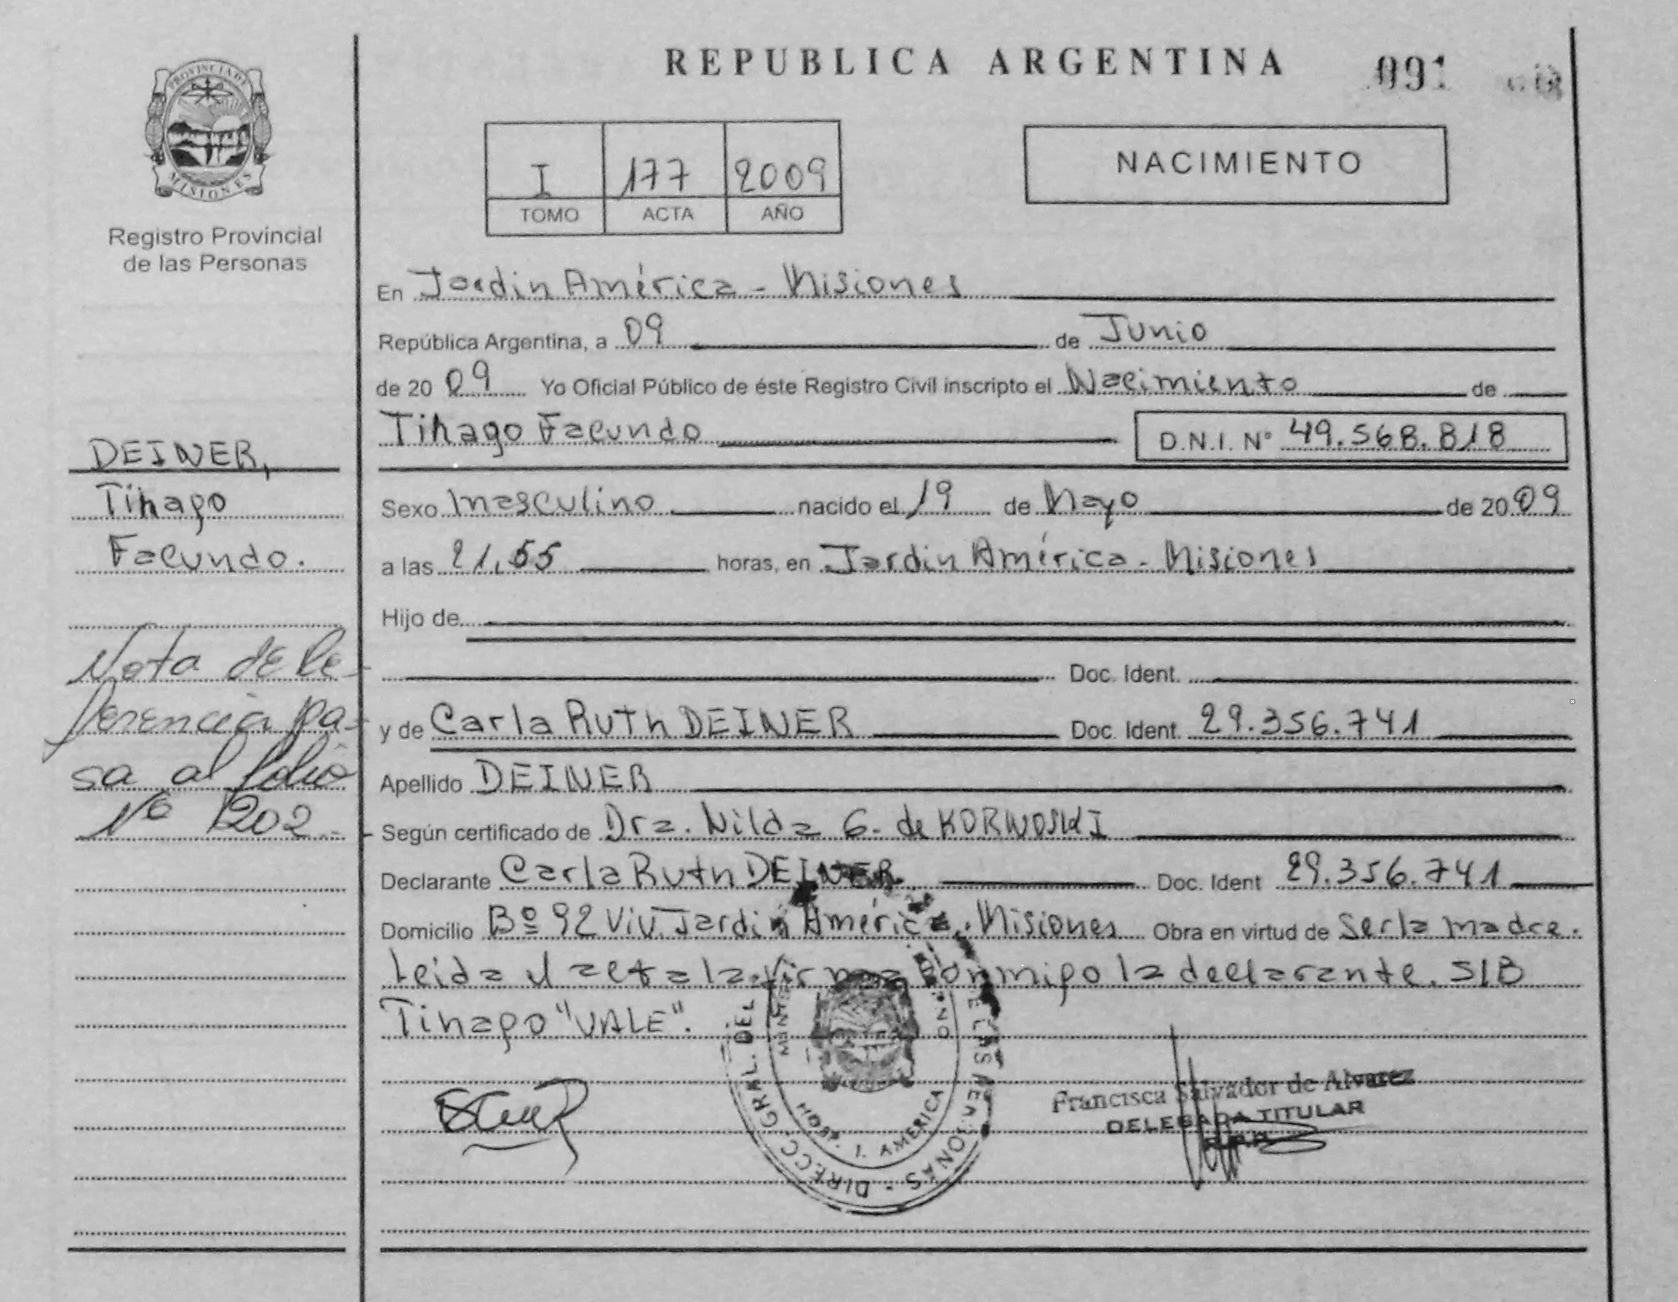 REPUBLICA ARGENTINA
091
PROVINCIA DE MISIONES
Registro Provincial
de las Personas
I 177 2009
TOMO ACTA AÑO
NACIMIENTO
En Jardin América - Misiones
República Argentina, a 09 de Junio
de 2009 Yo Oficial Público de éste Registro Civil inscripto el Nacimiento de
Tihago Facundo D.N.I. N° 49.568.818
Sexo Masculino nacido el 19 de Mayo de 2009
a las 21,55 horas, en Jardin América - Misiones
Hijo de
Doc. Ident.
y de Carla Ruth DEINER Doc. Ident. 29.356.741
Apellido DEINER
Según certificado de Dra. Nilda G. de
Declarante Carla Ruth DEINER Doc. Ident 29.356.741
Domicilio Bº 92 Viv. Jardin América - Misiones Obra en virtud de Ser la madre.
Leida el acta la firma conmigo la declarante. S/B
Tihago "VALE".
DEINER,
Tihago
Facundo.
Nota de Re-
ferencia pa-
sa al folio
Nº 1202
DIRECC. GRAL. DEL DE LAS PERSONAS
J. AMERICA
Francisca Salvador de Alvarez
DELEGADA TITULAR